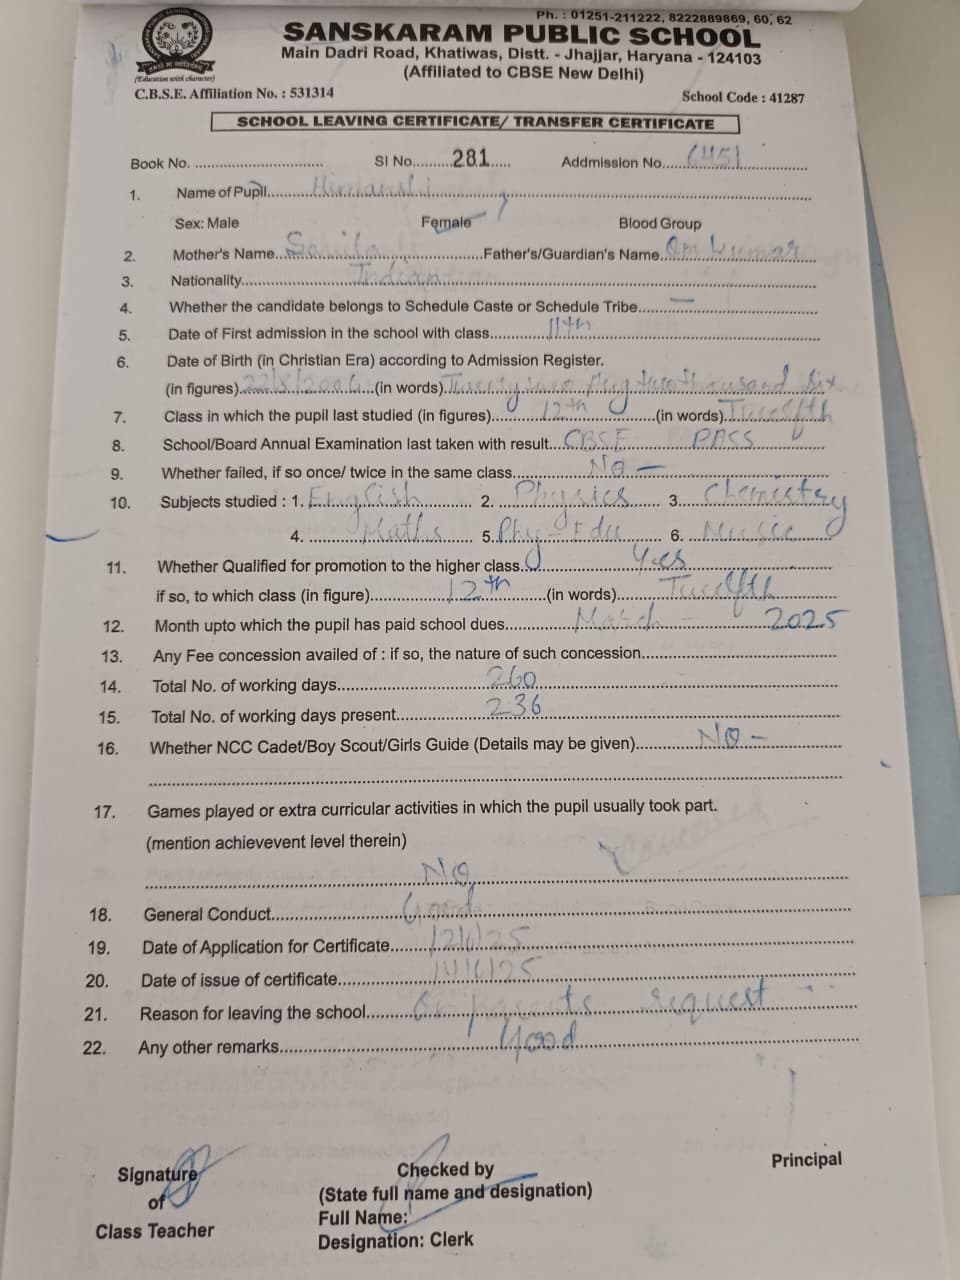 Ph. : 01251-211222, 8222889869, 60, 62
SANSKARAM PUBLIC SCHOOL
Main Dadri Road, Khatiwas, Distt. - Jhajjar, Haryana - 124103
(Affiliated to CBSE New Delhi)
(Education with character)
C.B.S.E. Affiliation No. : 531314 School Code : 41287
SCHOOL LEAVING CERTIFICATE/ TRANSFER CERTIFICATE
Book No. .............................. Sl No.........281..... Addmission No.....6451
1. Name of Pupil..........Himanshi
Sex: Male Female Blood Group
2. Mother's Name... .....................Father's/Guardian's Name.Om Kumar
3. Nationality.......................Indian
4. Whether the candidate belongs to Schedule Caste or Schedule Tribe...—
5. Date of First admission in the school with class.............11th
6. Date of Birth (in Christian Era) according to Admission Register.
(in figures).22/5/2006...(in words).Twenty two May two thousand six
7. Class in which the pupil last studied (in figures)...........12th................(in words).Twelfth
8. School/Board Annual Examination last taken with result...CBSE PASS
9. Whether failed, if so once/ twice in the same class...............No —
10. Subjects studied : 1. English 2. Physics 3. Chemistry
4. Maths 5. Phy-Edu 6. Music
11. Whether Qualified for promotion to the higher class...Yes
if so, to which class (in figure)................12th.........(in words)..........Twelfth
12. Month upto which the pupil has paid school dues.............March - 2025
13. Any Fee concession availed of : if so, the nature of such concession..........
14. Total No. of working days..............................260
15. Total No. of working days present...................236
16. Whether NCC Cadet/Boy Scout/Girls Guide (Details may be given)............No -
17. Games played or extra curricular activities in which the pupil usually took part.
(mention achievevent level therein)
No
18. General Conduct..........................Good
19. Date of Application for Certificate........12/6/25
20. Date of issue of certificate.................. 
21. Reason for leaving the school.........On parents request
22. Any other remarks...........................Good
Signature of Class Teacher
Checked by
(State full name and designation)
Full Name:
Designation: Clerk
Principal